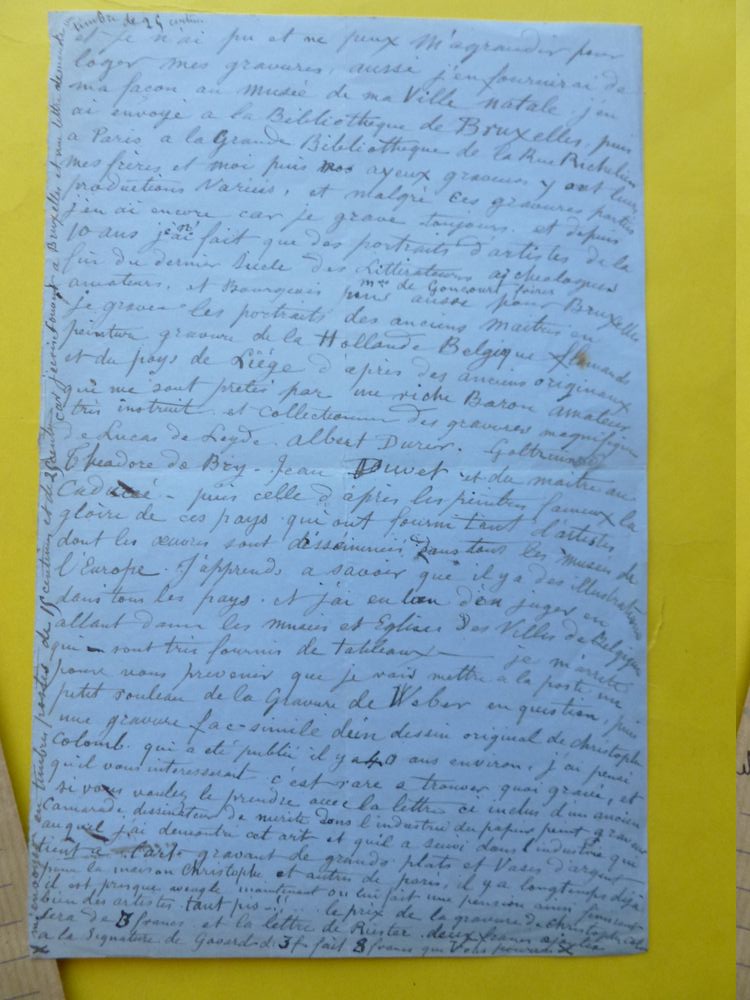 timbre de 25 centim
et je n'ai pu et ne peux m'agrandir pour
loger mes gravures, aussi j'en fournirai de
ma façon au musée de ma Ville natale, j'en
ai envoyé a la Bibliothèque de Bruxelles, puis
a Paris a la Grande Bibliothèque de la Rue Richelieu
mes frères et moi puis nos ayeux graveurs y ont leurs
productions variées, et malgré ces gravures parties
j'en ai encore car je grave toujours et depuis
10 ans je n'ai fait que des portraits d'artistes de la
fin du dernier Siècle des Littérateurs archeologues
amateurs, et Bourgeois puis aussi pour Bruxelles
mrs de Goncourt
je grave les portraits des anciens maitres en
peinture gravure de la Hollande Belgique flamands
et du pays de Liége d'après des anciens originaux
qui me sont pretés par un riche Baron amateur
très instruit et collectionneur des gravures magnifiques
de Lucas de Leyde. Albert Durer.
Théadore de Bry - Jean Duvet et du maitre au
Caducée - puis celle d'après les peintres fameux la
gloire de ces pays qui ont fourni tant d'artistes
dont les œuvres sont disséminées dans tous les musées de
l'Europe. J'apprends a savoir que il y a des illustrations
dans tous les pays et j'ai eu lieu d'en juger en
allant dans les musees et Eglises des Villes de Belgique
qui sont très fournis de tableaux — je m'arrete
pour vous prevenir que je vais mettre a la poste un
petit rouleau de la Gravure de Weber en question, puis
une gravure fac-simile d'un dessin original de christophe
colomb. qui a été publié il y a 40 ans environ, j'ai pensé
qu'il vous interesserait c'est rare a trouver quoi gravé, et
si vous voulez le prendre avec la lettre ci inclus d'un ancien
camarade dessinateur de merite dans l'industrie du papier peint graveur
auquel j'ai demontré cet art et qu'il a suivi dans l'industrie qui
tient a l'art gravant de grands plats et Vases d'argent
pour la maison Christophe et autres de paris il y a longtemps déja
il est presque aveugle maintenant on lui fait une pension ainsi finissent
bien des artistes. tant pis!! le prix de la gravure de christophe colomb
sera de 3 francs et la lettre de deux francs
a la signature de Gavard d. 3f fait 8 francs que vous pourrez
m'envoyer en timbres postes de 15 centimes et de 25 centim car j'écris souvent a Bruxelles et une lettre demande un